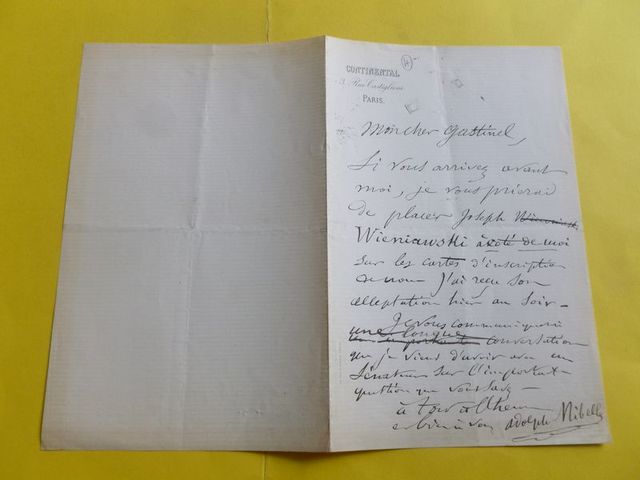 CONTINENTAL
3 Rue Castiglione
PARIS.
Mon cher Gastinel,
Si vous arrivez avant
moi, je vous prierai
de placer Joseph Wieniawski
Wieniawski à côté de moi
sur les cartes d'inscription
de nom J'ai reçu son
acceptation hier au soir –
Je vous communiquerai
une longue
conversation
que je viens d'avoir avec un
Sénateur sur l'important
question que vous savez –
à tout à l'heure
et bien à vous adolphe Nibelle